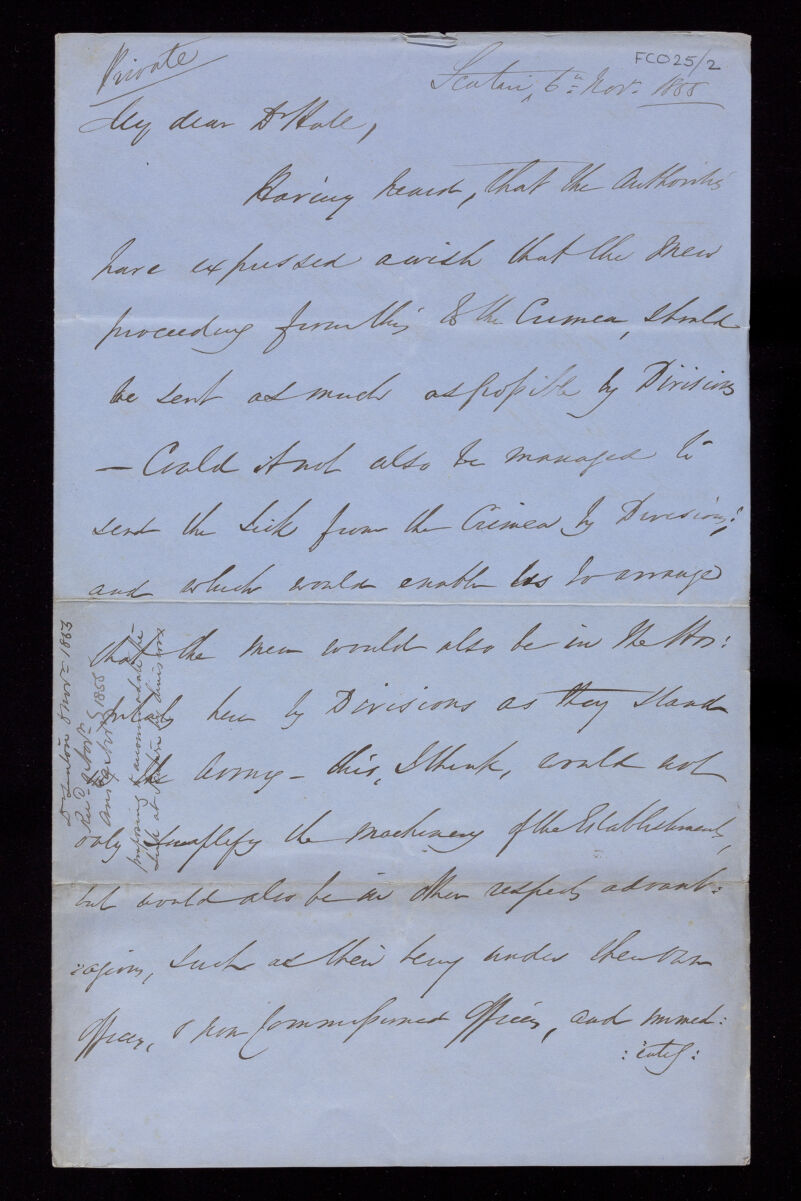 Private
FCO25/2
Scutari, 6th Novr. 1855
My dear Dr Hall,
Having heard, that the Authorities
have expressed a wish that the men
proceeding from this to the Crimea, should
be sent as much as possible by Divisions
– Could it not also be managed to
send the Sick from the Crimea by Divisions;
and which would enable us to arrange
that the men would also be in the Hos:
:pitals here by Divisions as they stand
the Army – this, I think, would not
only simplify the machinery of the Establishment,
but would also be in other respects advant:
:ageous, such as their being under their own
Officers, & non Commissioned Officers, and immed:
:iately:
Dr Linton 6 Novr 1855
Recd 9 Novr
Ansd 9 Novr 1855
proposing to accommodate the
Sick at Scutari by divisions